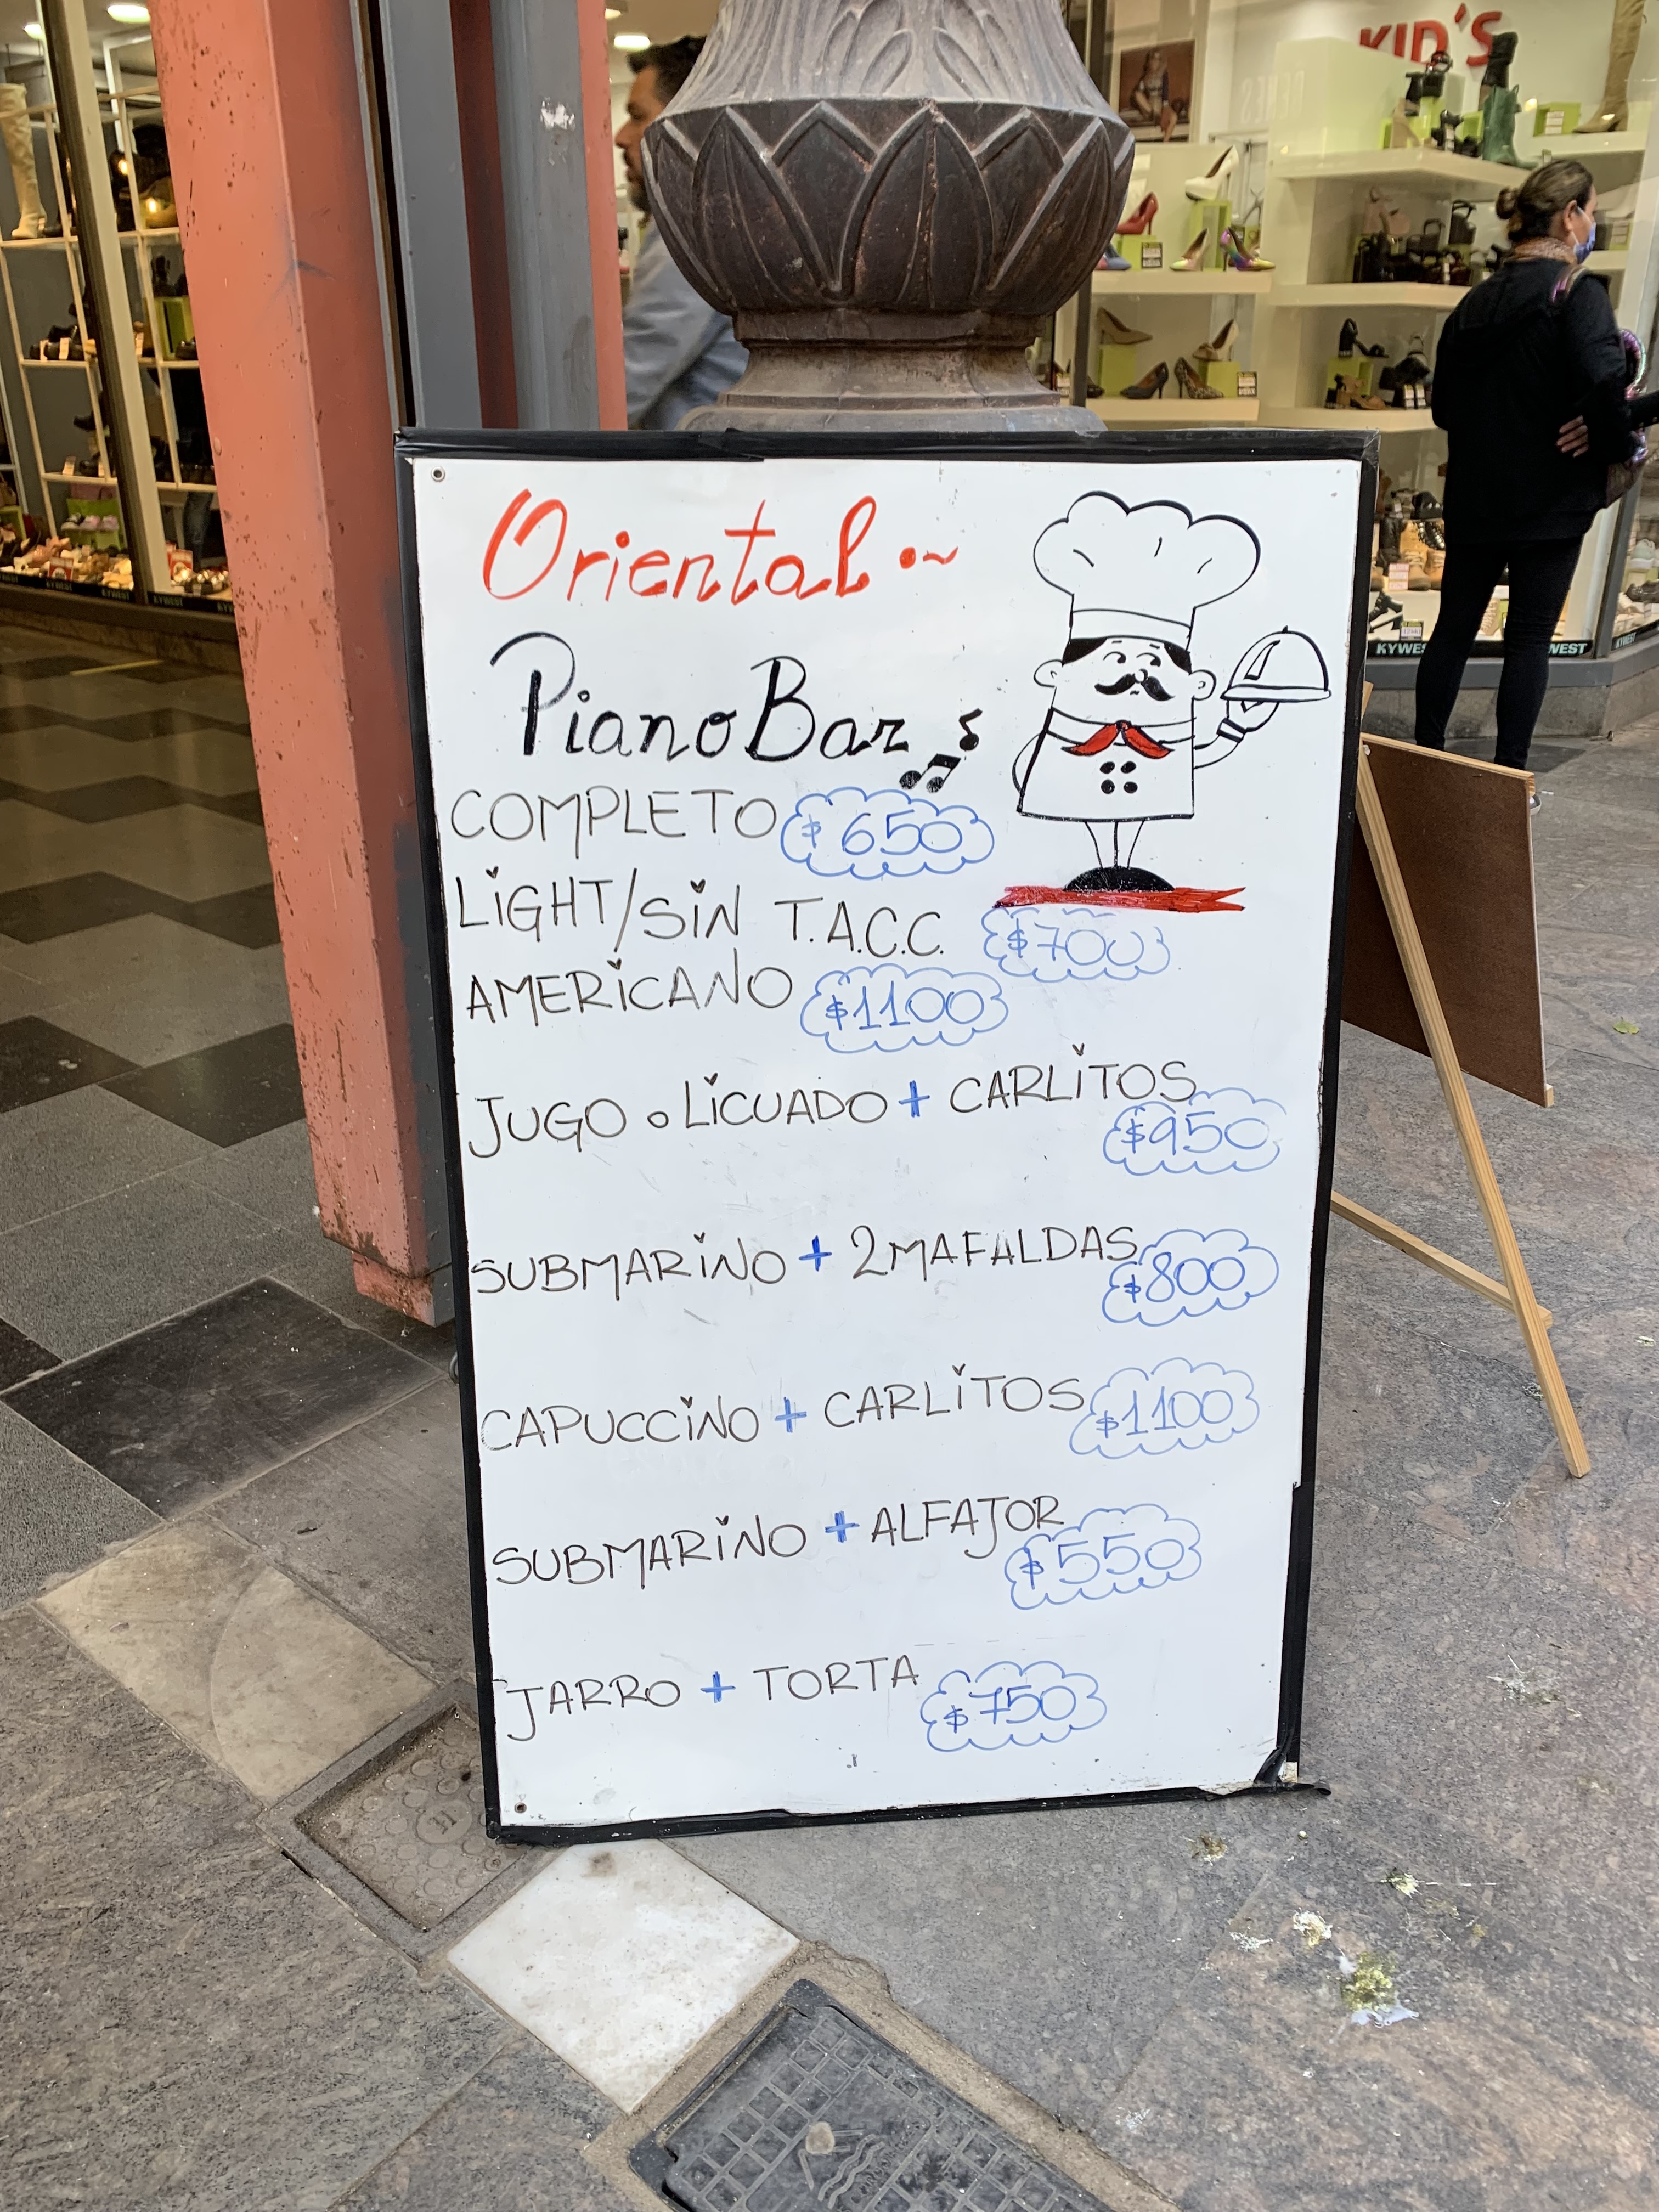 KID'S
Oriental
Piano Bar
COMPLETO $650
LIGHT/SIN T.A.C.C. $700
AMERICANO $1100
JUGO o LICUADO + CARLITOS
$950
SUBMARINO + 2 MAFALDAS
$800
CAPUCCINO + CARLITOS $1100
SUBMARINO + ALFAJOR
$550
JARRO + TORTA $750
KYWEST
KYWEST